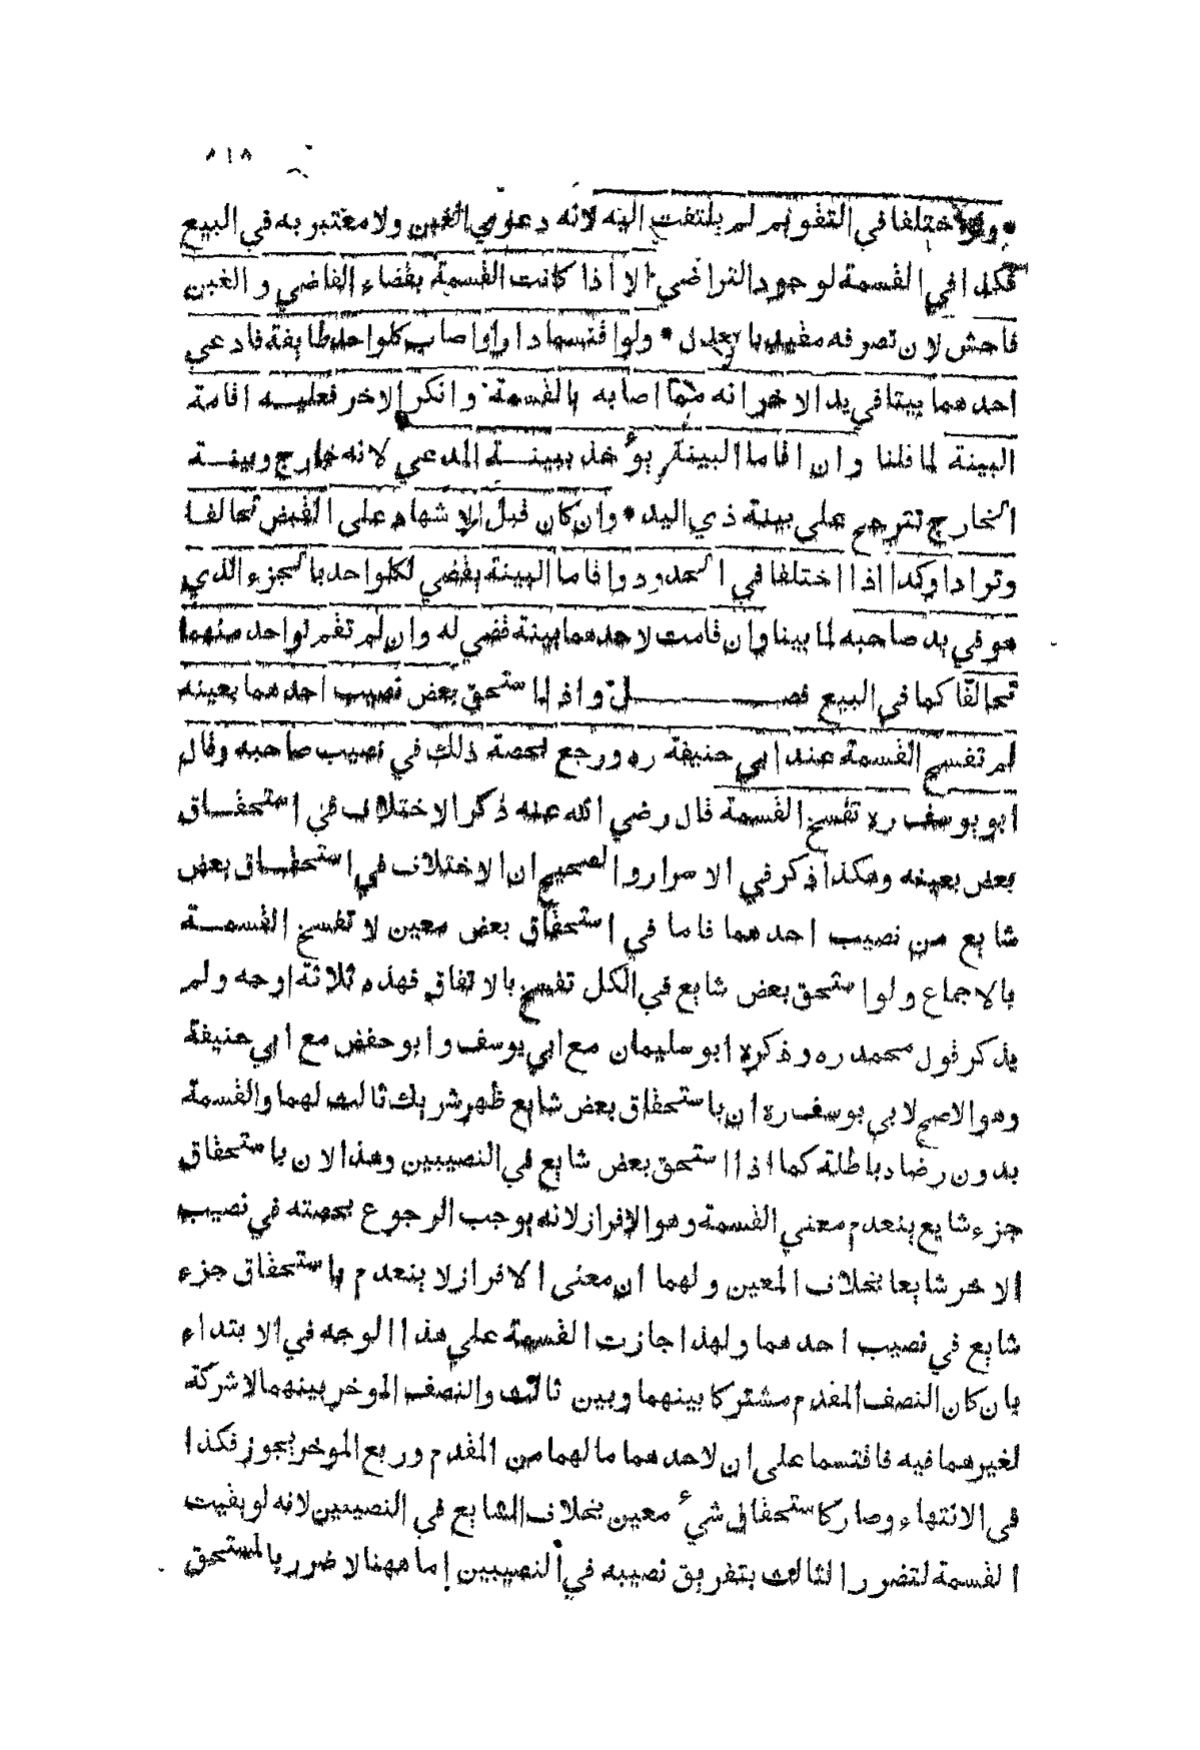 ٨١٨
• ولو اختلفا في التقويم لم يلتفت اليه لانه دعوي الغبن ولا معتبر به في البيع
فكذا في القسمة لوجود التراضي الا اذا كانت القسمة بقضاء القاضي و الغبن
فاحش لان تصرفه مقيد بالعدل • ولو اقتسما دارا و اصاب كلواحد طايفة فادعي
احدهما بيتا في يد الاخر انه مما اصابه بالقسمة و انكر الاخر فعليه اقامة
البينة لما قلنا و ان اقاما البينة يؤخذ ببينة المدعي لانه خارج وبينة
الخارج تترجح علي بينة ذي اليد • وان كان قبل الاشهاد علي القبض تحالفا
وترادا وكذا اذا اختلفا في الحدود و اقاما البينة يقضي لكلواحد بالجزء الذي
هو في يد صاحبه لما بينا وان قامت لاحدهما بينة قضي له وان لم تقم لواحد منهما
تحالفا كما في البيع فصل و اذا استحق بعض نصيب احدهما بعينه
لم تفسخ القسمة عند ابي حنيفة ره ورجع بحصة ذلك في نصيب صاحبه وقال
ابو يوسف ره تفسخ القسمة قال رضي الله عنه ذكر الاختلاف في استحقاق
بعض بعينه وهكذا ذكر في الاسرار والصحيح ان الاختلاف في استحقاق بعض
شايع من نصيب احدهما فاما في استحقاق بعض معين لا تفسخ القسمة
بالاجماع ولو استحق بعض شايع في الكل تفسخ بالاتفاق فهذه ثلاثة اوجه ولم
يذكر قول محمد ره وذكره ابو سليمان مع ابي يوسف و ابو حفص مع ابي حنيفة
وهو الاصح لابي يوسف ره ان باستحقاق بعض شايع ظهر شريك ثالث لهما والقسمة
بدون رضاه باطلة كما اذا استحق بعض شايع في النصيبين وهذا لان باستحقاق
جزء شايع ينعدم معني القسمة وهو الافراز لانه يوجب الرجوع بحصته في نصيب
الاخر شايعا بخلاف المعين ولهما ان معنى الافراز لا ينعدم باستحقاق جزء
شايع في نصيب احدهما ولهذا جازت القسمة علي هذا الوجه في الابتداء
بان كان النصف المقدم مشتركا بينهما وبين ثالث والنصف الموخر بينهما لا شركة
لغيرهما فيه فاقتسما على ان لاحدهما ما لهما من المقدم وربع الموخر يجوز فكذا
في الانتهاء وصار كاستحقاق شيء معين بخلاف الشايع في النصيبين لانه لو بقيت
القسمة لتضرر الثالث بتفريق نصيبه في النصيبين اما ههنا لا ضرر بالمستحق